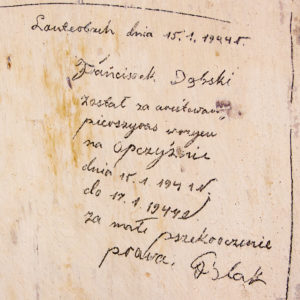 Lauterbach dnia 15.1.1944r.
Frańciszek Dąbski
został za aresztowany
pierszyras wrzyeu
na Opczyźnie
dnia 15 1 1941
do 17.1 1944
za małe pszekroczenie
prawa.